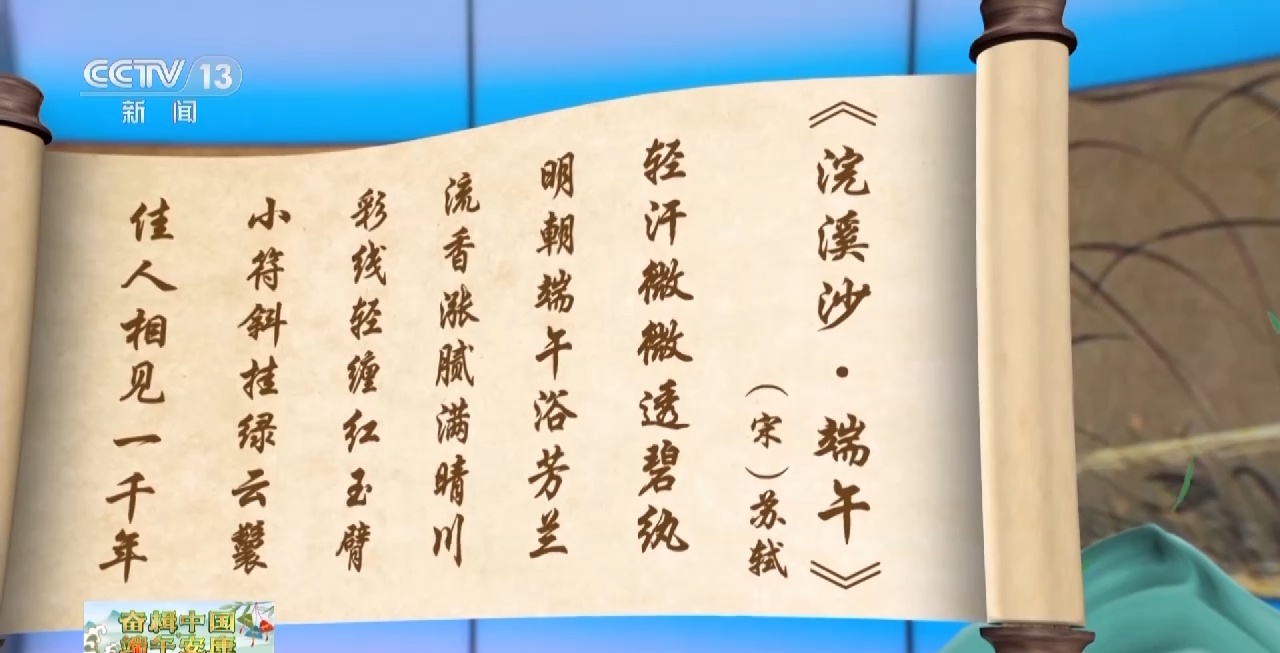 CCTV 13
新闻
《浣溪沙·端午》
（宋）苏轼
轻汗微微透碧纨
明朝端午浴芳兰
流香涨腻满晴川
彩线轻缠红玉臂
小符斜挂绿云鬟
佳人相见一千年
奋楫中国
端午安康